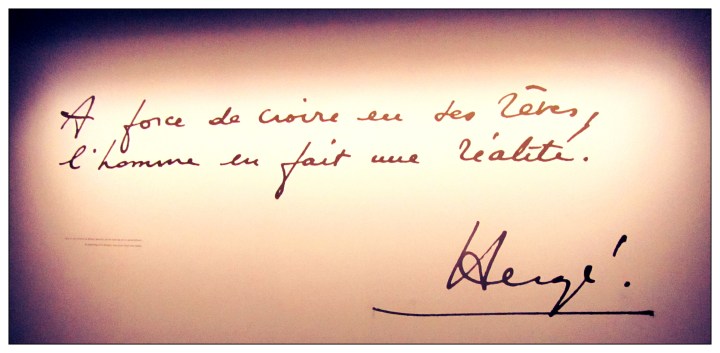 A force de croire en ses rêves,
l'homme en fait une réalité.
Hergé.